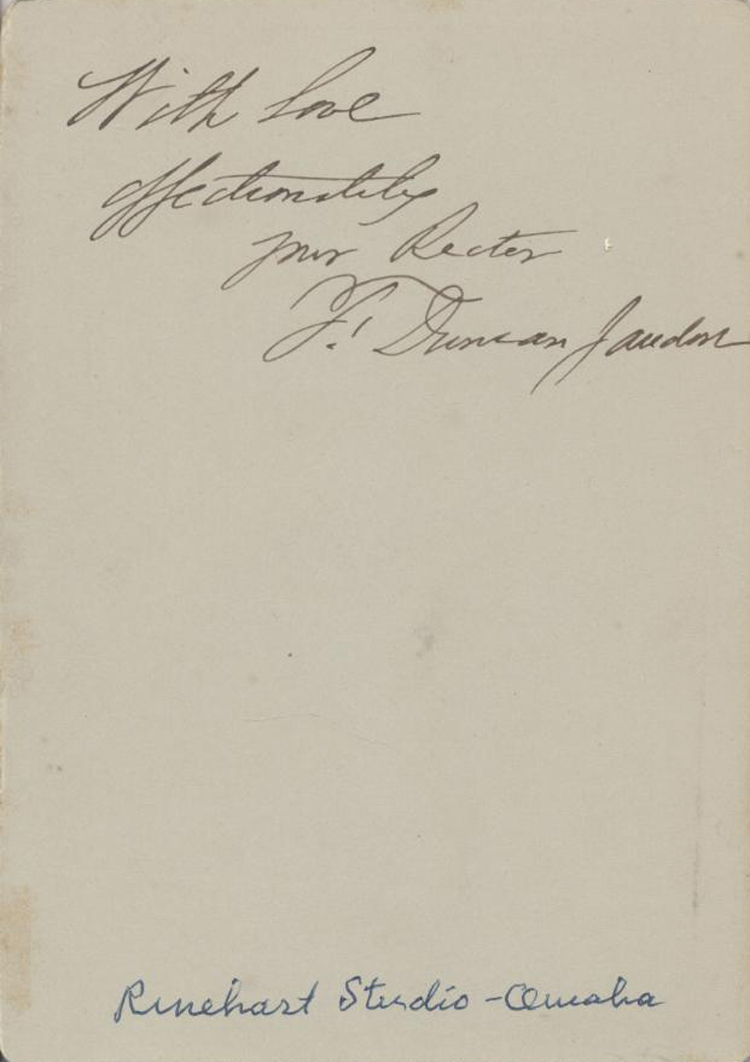 With love
affectionately
your Rector
F. Duncan Jaudon
Rinehart Studio - Omaha